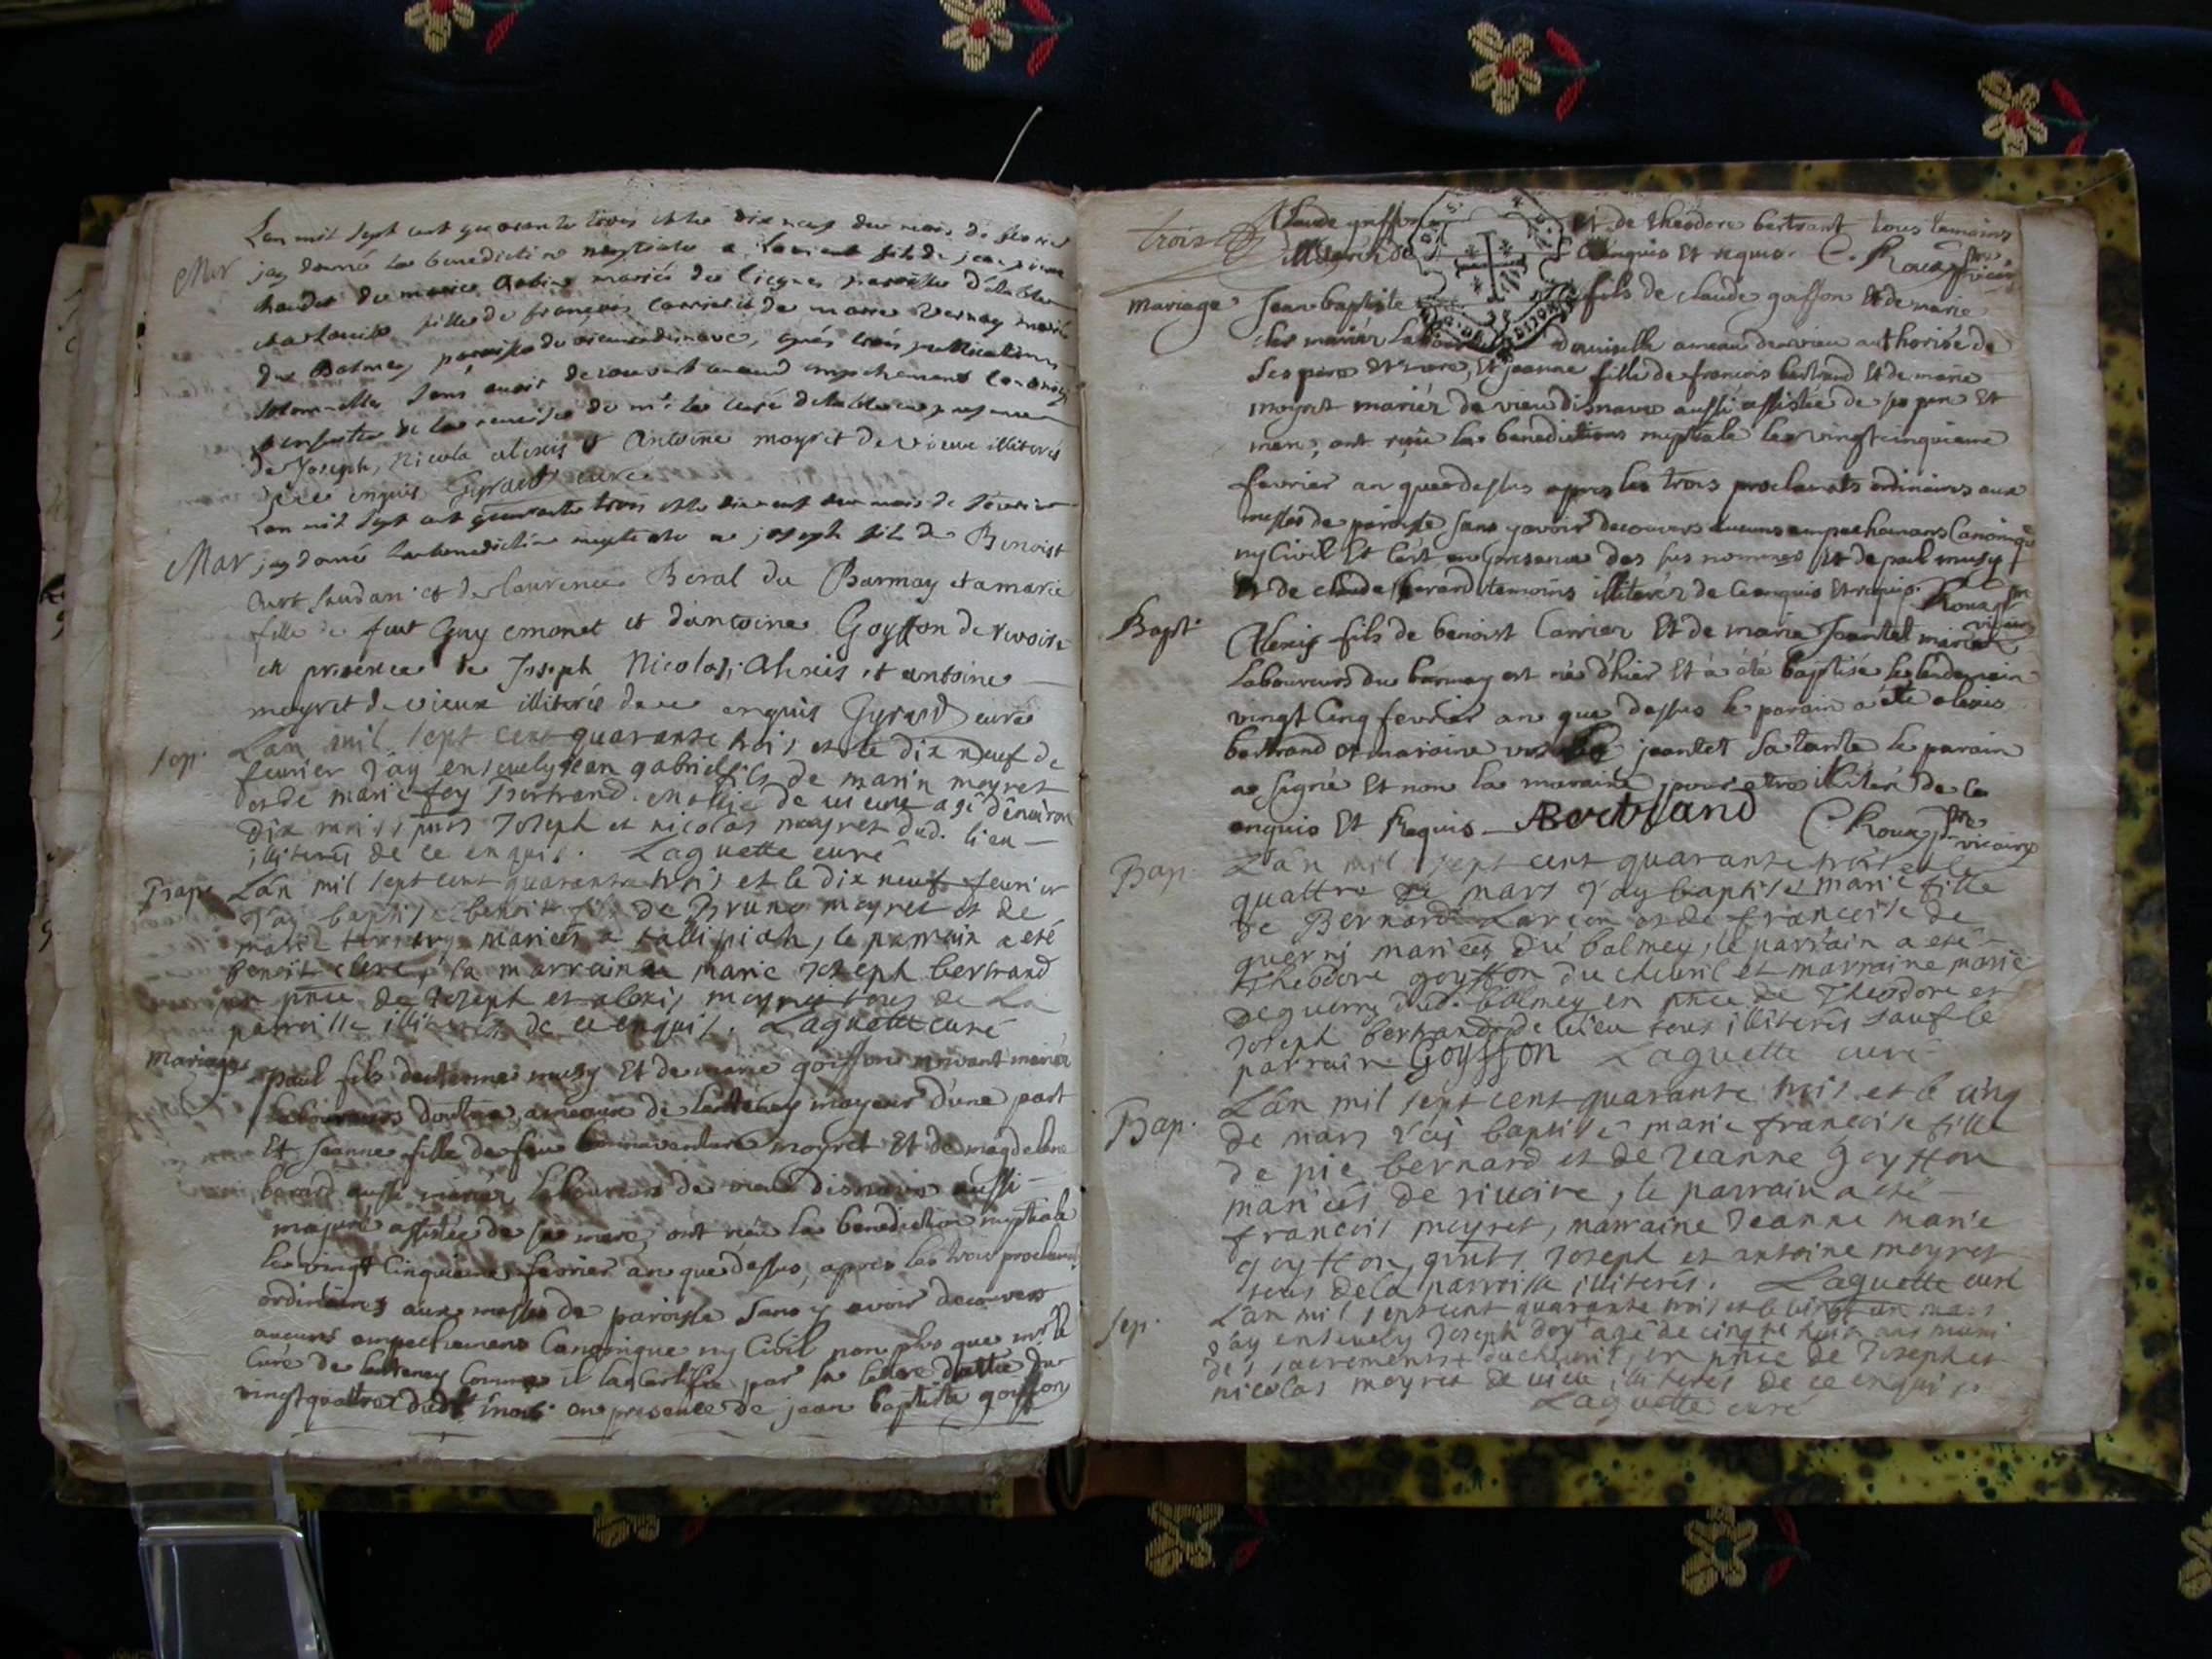 Mar
L'an mil sept cent quarante trois et le dix neuf du mois de fevrier
jay donné la benediction nuptiale a fils de
mariés de paroisse
et a Louise fille de françois Carrier et de marie Vernay mariés
du Balmey paroisse de vieu disnave, aprés trois publications
solemnelles sans avoir decouvert aucun empechement canonique
de la remise de mr le curé en presence
de Joseph, Nicola alexis et Antoine moyret de vieux illiterés
de ce enquis Gyraud curé
Mar
L'an mil sept cent quarante trois et le dix neuf du mois de fevrier
jay donné la benediction nuptiale a joseph fils de Benoist
et de laurence Béral du Barmay et a marie
fille de feut Guy emonet et d'antoine Goyffon de rivoire
en presence de Joseph Nicolas, Alexis et antoine
moyret de vieux illiterés de ce enquis Gyraud curé
sep.
L'an mil sept cent quarante trois et le dix neuf de
fevrier j'ay ensevely jean gabriel fils de marin moyret
et de marie foy Bertrand de vieux agé d'environ
dix mois pnts Joseph et nicolas moyret dud. lieu
illiterés de ce enquis. Laguette curé
Bap.
L'an mil sept cent quarante trois et le dix neuf feurier
j'ay baptisé benoit fils de Bruno moyret et de
marie mariés a tallipiah, le parrain a eté
benoit la marraine marie Joseph bertrand
en pnce de Joseph et alexis moyret tous de la
parroisse illiterés de ce enquis. Laguette curé
Mariage
paul fils d'etienne musy Et de marie goiffon vivant mariés
laboureurs hameau de lantenay mayeur d'une part
Et Jeanne fille de feu bonnaventure moyret Et de magdelene
aussi mariés laboureurs de vieu disnave aussi
majeure assistée de sa mere, ont reçu la benediction nuptiale
le vingt cinquieme fevrier an que dessus, apres les trois proclamats
ordinaires aux messes de paroisse sans y avoir decouvers
aucuns empechemens Canonique ny Civil non plus que mr le
Curé de lantenay Comme il la certifié par sa lettre dattée du
vingt quattre dudt mois en presence de jean baptiste goiffon
trois
Claude goiffon Et de theodore bertrant tous temoins
illiterés de Cenquis Et requis. C. Roux ptre vicaire
mariage
Jean baptiste fils de claude goiffon Et de marie
mariés hameau de vieu authorisé de
ses pere et mere, Et jeanne fille de francois bertrand Et de marie
moyret mariés de vieu disnave aussi assistée de ses pere Et
mere, ont reçu la benediction nuptiale le vingt cinquieme
fevrier an que dessus apres les trois proclamats ordinaires aux
messes de paroisse sans y avoir decouvers aucuns empechemens Canonique
ny Civil Et c'est en presence des sus nommes Et de paul musy
Et de claude temoins illiterés de Cenquis Et requis. C. Roux ptre vicaire
Bapt.
Alexis fils de benoist Carrier Et de marie Jeantet mariés
laboureurs du barmay est né d'hier Et a été baptisé le lendemain
vingt Cinq fevrier an que dessus le parain a été alexis
bertrand et maraine jeantet sa tante le parain
a signé Et non la maraine pour etre illiterée de ce
enquis Et Requis ABertrand C. Roux ptre vicaire
Bap.
L'an mil sept cent quarante trois et le
quattre de mars j'ay baptisé marie fille
de Bernard et de francoise de
querry mariés du balmey, le parrain a eté
Theodore goyffon du cheuril et marraine marie
dequerry dud. balmey en pnce de Theodore et
Joseph bertrand de vieu tous illiterés sauf le
parrain Goyffon Laguette curé
Bap.
L'an mil sept cent quarante trois et le cinq
de mars j'ay baptisé marie francoise fille
de pie bernard et de Jeanne Goyffon
mariés de rivoire, le parrain a eté
francois moyret, marraine Jeanne marie
goyffon, pnts Joseph et antoine moyret
tous de la parroisse illiterés. Laguette curé
sep.
L'an mil sept cent quarante trois et le vingt un mars
j'ay ensevely Joseph agé de cinq te huit ans muni
des sacrements + du cheuril, en pnce de Joseph et
nicolas moyret de vieu illiterés de ce enquis.
Laguette curé